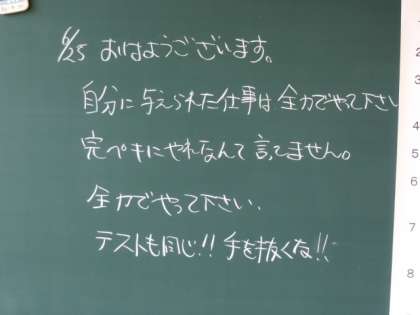 6/25 おはようございます。
自分に与えられた仕事は全力でやって下さい
完ペキにやれなんて言てません。
全力でやって下さい.
テストも同じ!! 手を抜くな!!
2
4
5
6
7
8